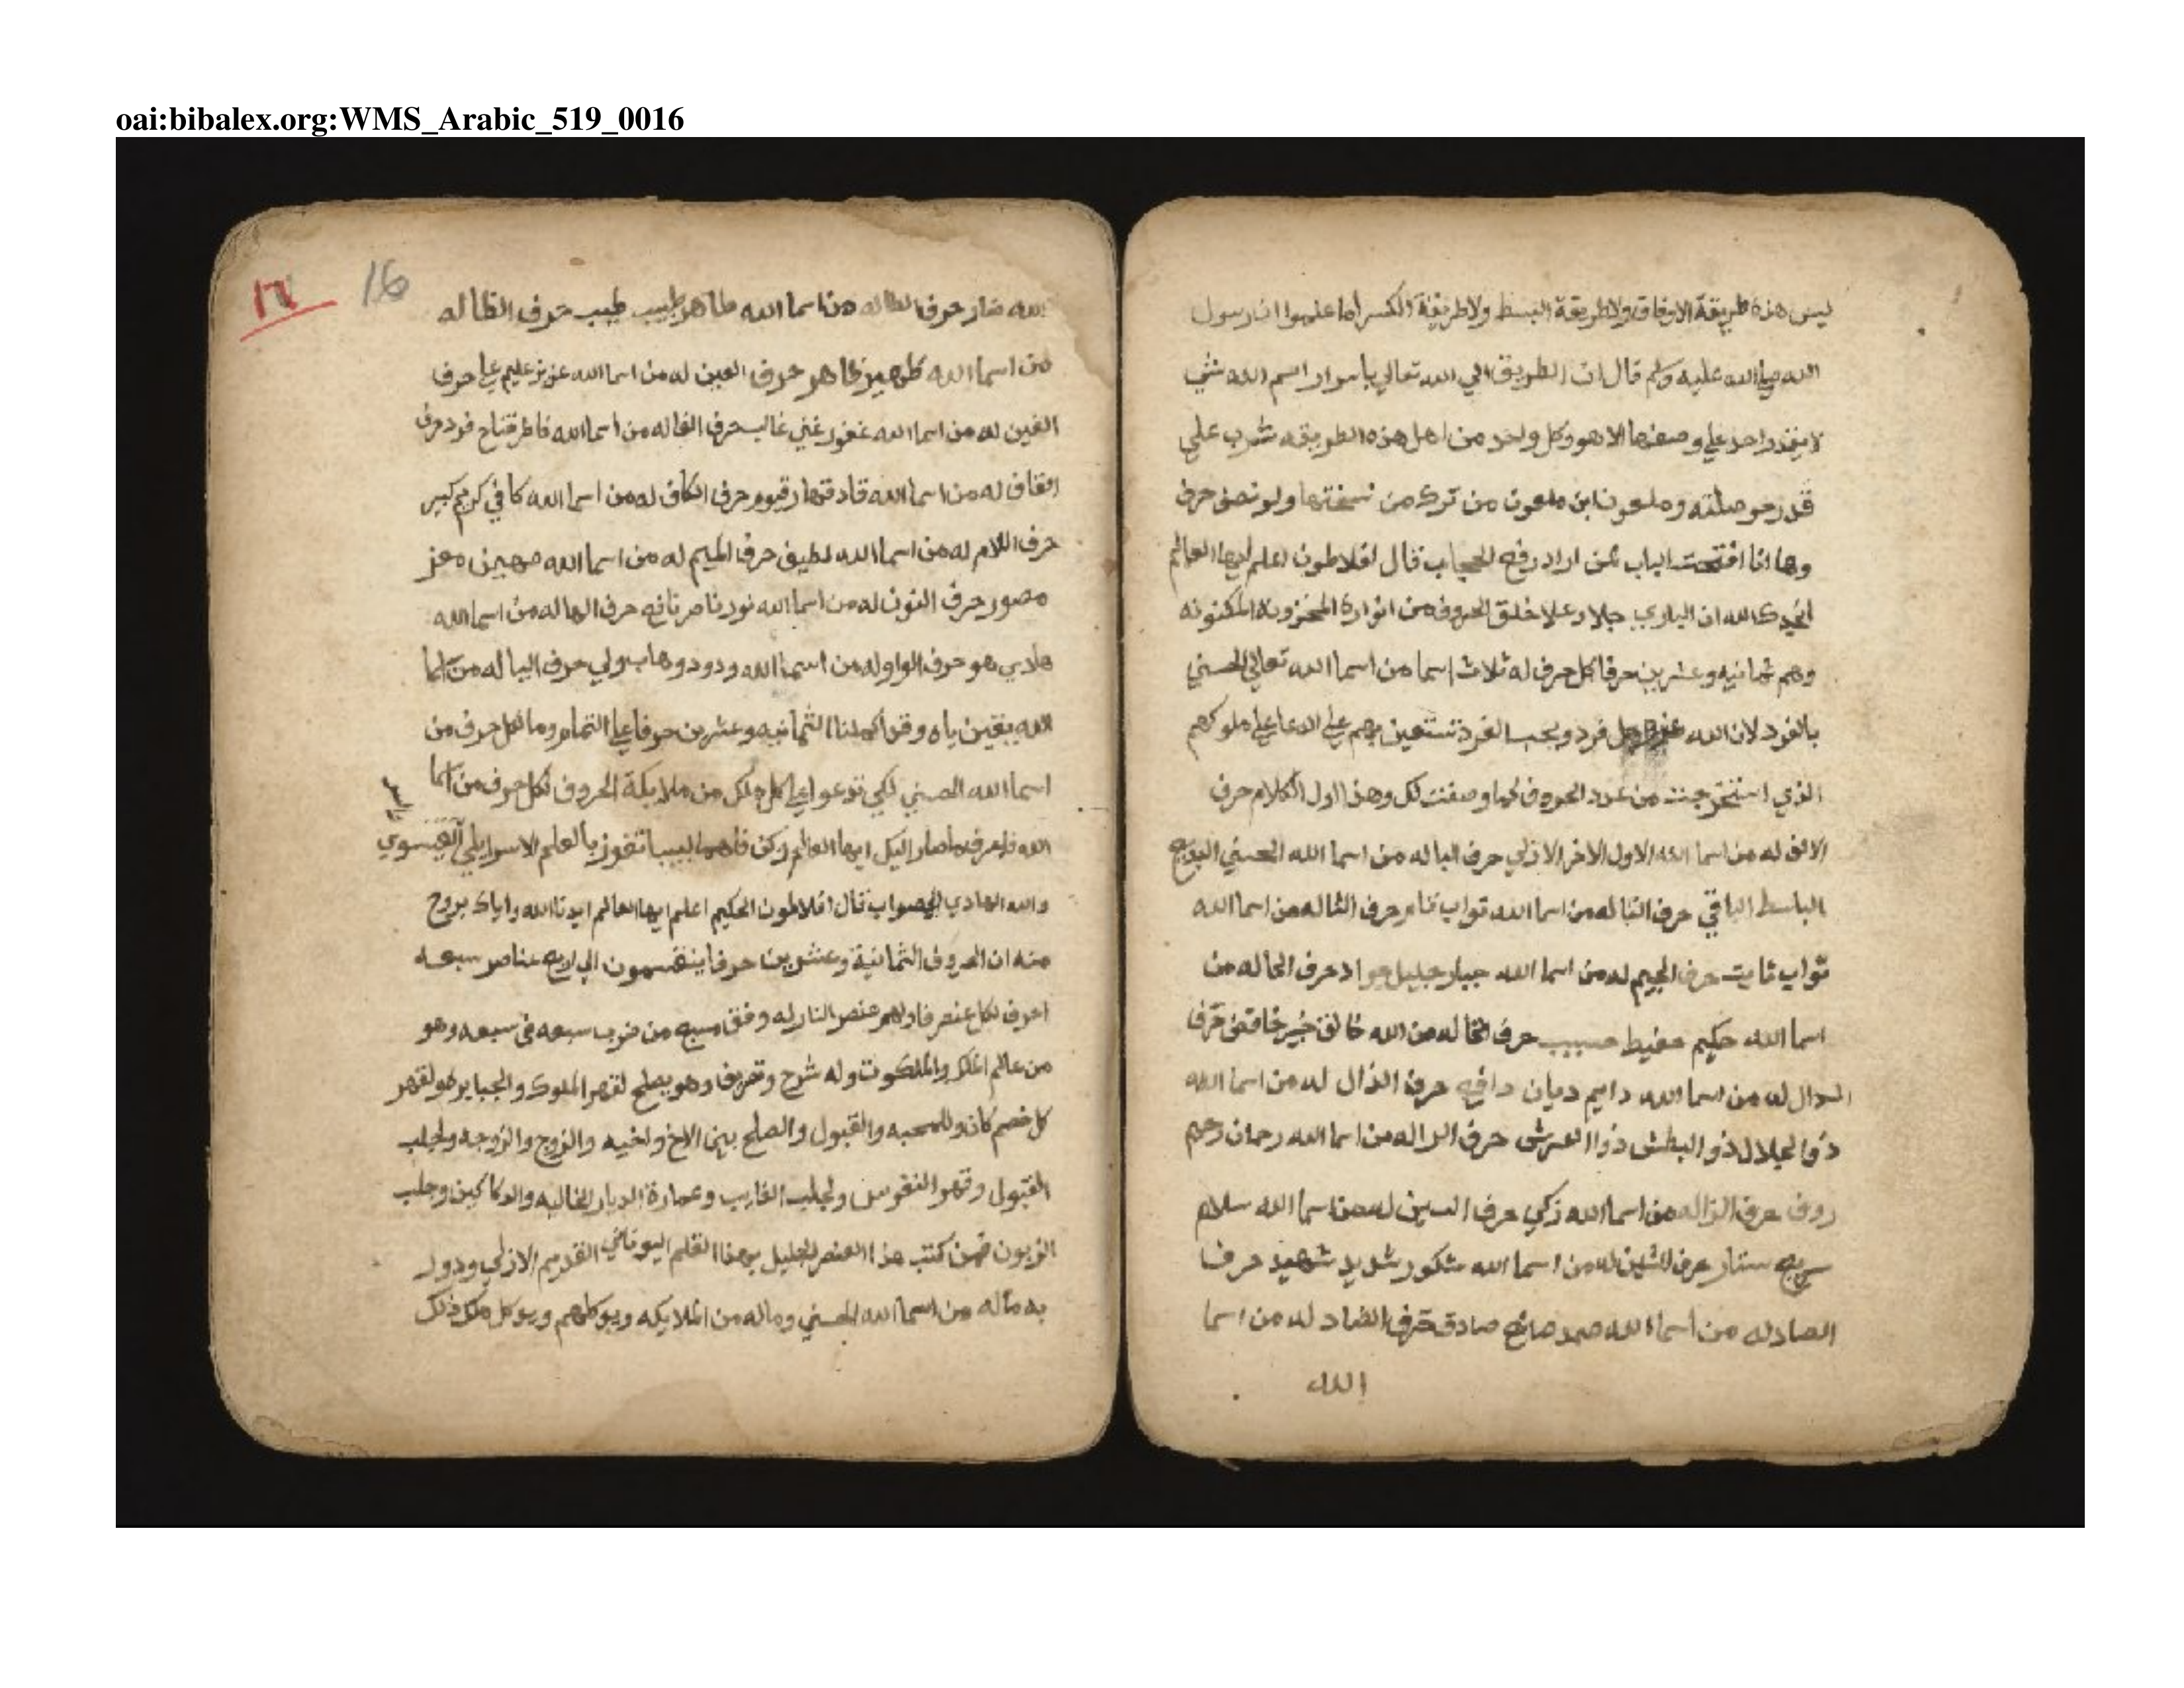 oai:bibalex.org:WMS_Arabic_519_0016
ليس هذه طريقة الاوفاق ولا طريقة البسط ولا طريقة الكسر اما علموا ان رسول
الله صلي الله عليه وسلم قال ان الطريق الي الله تعالي باسرار اسم الله شي
لا يقدر احد علي وصفها الا هو وكل واحد من اهل هذه الطريقه شرب علي
قدر حوصلته وملعون ابن ملعون من ترك من نسختها ولو نصف حرف
وها انا افتتحت الباب لمن اراد رفع الحجاب قال افلاطون اعلم ايها العالم
ايدك الله ان الباري جلا وعلا خلق الحروف من انواره المخزونة المكنونه
وهم ثمانيه وعشرين حرفا كل حرف له ثلاث اسما من اسما الله تعالي الحسني
بالفرد لان الله عز وجل فرد ويحب الفرد تستعين بهم علي الدعا علي ملوكهم
الذي استخرجت من عدد الحروف كما وصفت لك وهذا اول الكلام حرف
الالف له من اسما الله الاول الاخر الازلي حرف البا له من اسما الله الحسني البديع
الباسط الباقي حرف التا له من اسما الله تواب تام حرف الثا له من اسما الله
ثواب ثابت حرف الجيم له من اسما الله جبار جليل جواد حرف الحا له من
اسما الله حكيم حفيظ حسيب حرف الخا له من الله خالق خبير خافض حرف
الدال له من اسما الله دايم ديان دافع حرف الذال له من اسما الله
ذو الجلال ذو البطش ذو العرش حرف الرا له من اسما الله رحمان رحيم
روف حرف الزا له من اسما الله زكي حرف السين له من اسما الله سلام
سريع ستار حرف الشين له من اسما الله شكور شديد شهيد حرف
الصاد له من اسما الله صمد صانع صادق حرف الضاد له من اسما
الله
١٦ 16
الله ضار حرف الطا له من اسما الله طاهر طبيب طيب حرف الظا له
من اسما الله ظهير ظاهر حرف العين له من اسما الله عزيز عليم علي حرف
الغين له من اسما الله غفور غني غالب حرف الفا له من اسما الله فاطر فتاح فرد حرف
القاف له من اسما الله قادر قهار قيوم حرف الكاف له من اسما الله كافي كريم كبير
حرف اللام له من اسما الله لطيف حرف الميم له من اسما الله مهيمن معز
مصور حرف النون له من اسما الله نور ناصر نافع حرف الها له من اسما الله
هادي هو حرف الواو له من اسما الله ودود وهاب ولي حرف اليا له من اسما
الله يقين ياه وقد اكملنا الثمانيه وعشرين حرفا علي التمام وما لكل حرف من
اسما الله الحسني لكي تدعوا علي كل ملك من ملايكة الحروف لكل حرف من اسما
الله فاعرف ما صار اليك ايها العالم وكن فاهما لبيبا تفوز بالعلم الاسرايلي العيسوي
والله الهادي للصواب قال افلاطون الحكيم اعلم ايها العالم ايدنا الله واياك بروح
منه ان الحروف الثمانية وعشرين حرفا ينقسمون الي اربع عناصر سبعه
احرف لكل عنصر فاولهم عنصر النار له وفق مسبع من ضرب سبعه في سبعه وهو
من عالم الملك والملكوت وله شرح وتصريف وهو يصلح لقهر الملوك والجبابره ولقهر
كل خصم كان وللمحبه والقبول والصلح بين الاخ واخيه والزوج والزوجه ولجلب
القبول وقهر النفوس ولجلب الغايب وعمارة الديار الخاليه والدكاكين وجلب
الزبون فمن كتب هذا العنصر الجليل بهذا القلم اليوناني القديم الازلي ودور
به ماله من اسما الله الحسني وماله من الملايكه ويوكلهم ويوكل ملك ذلك